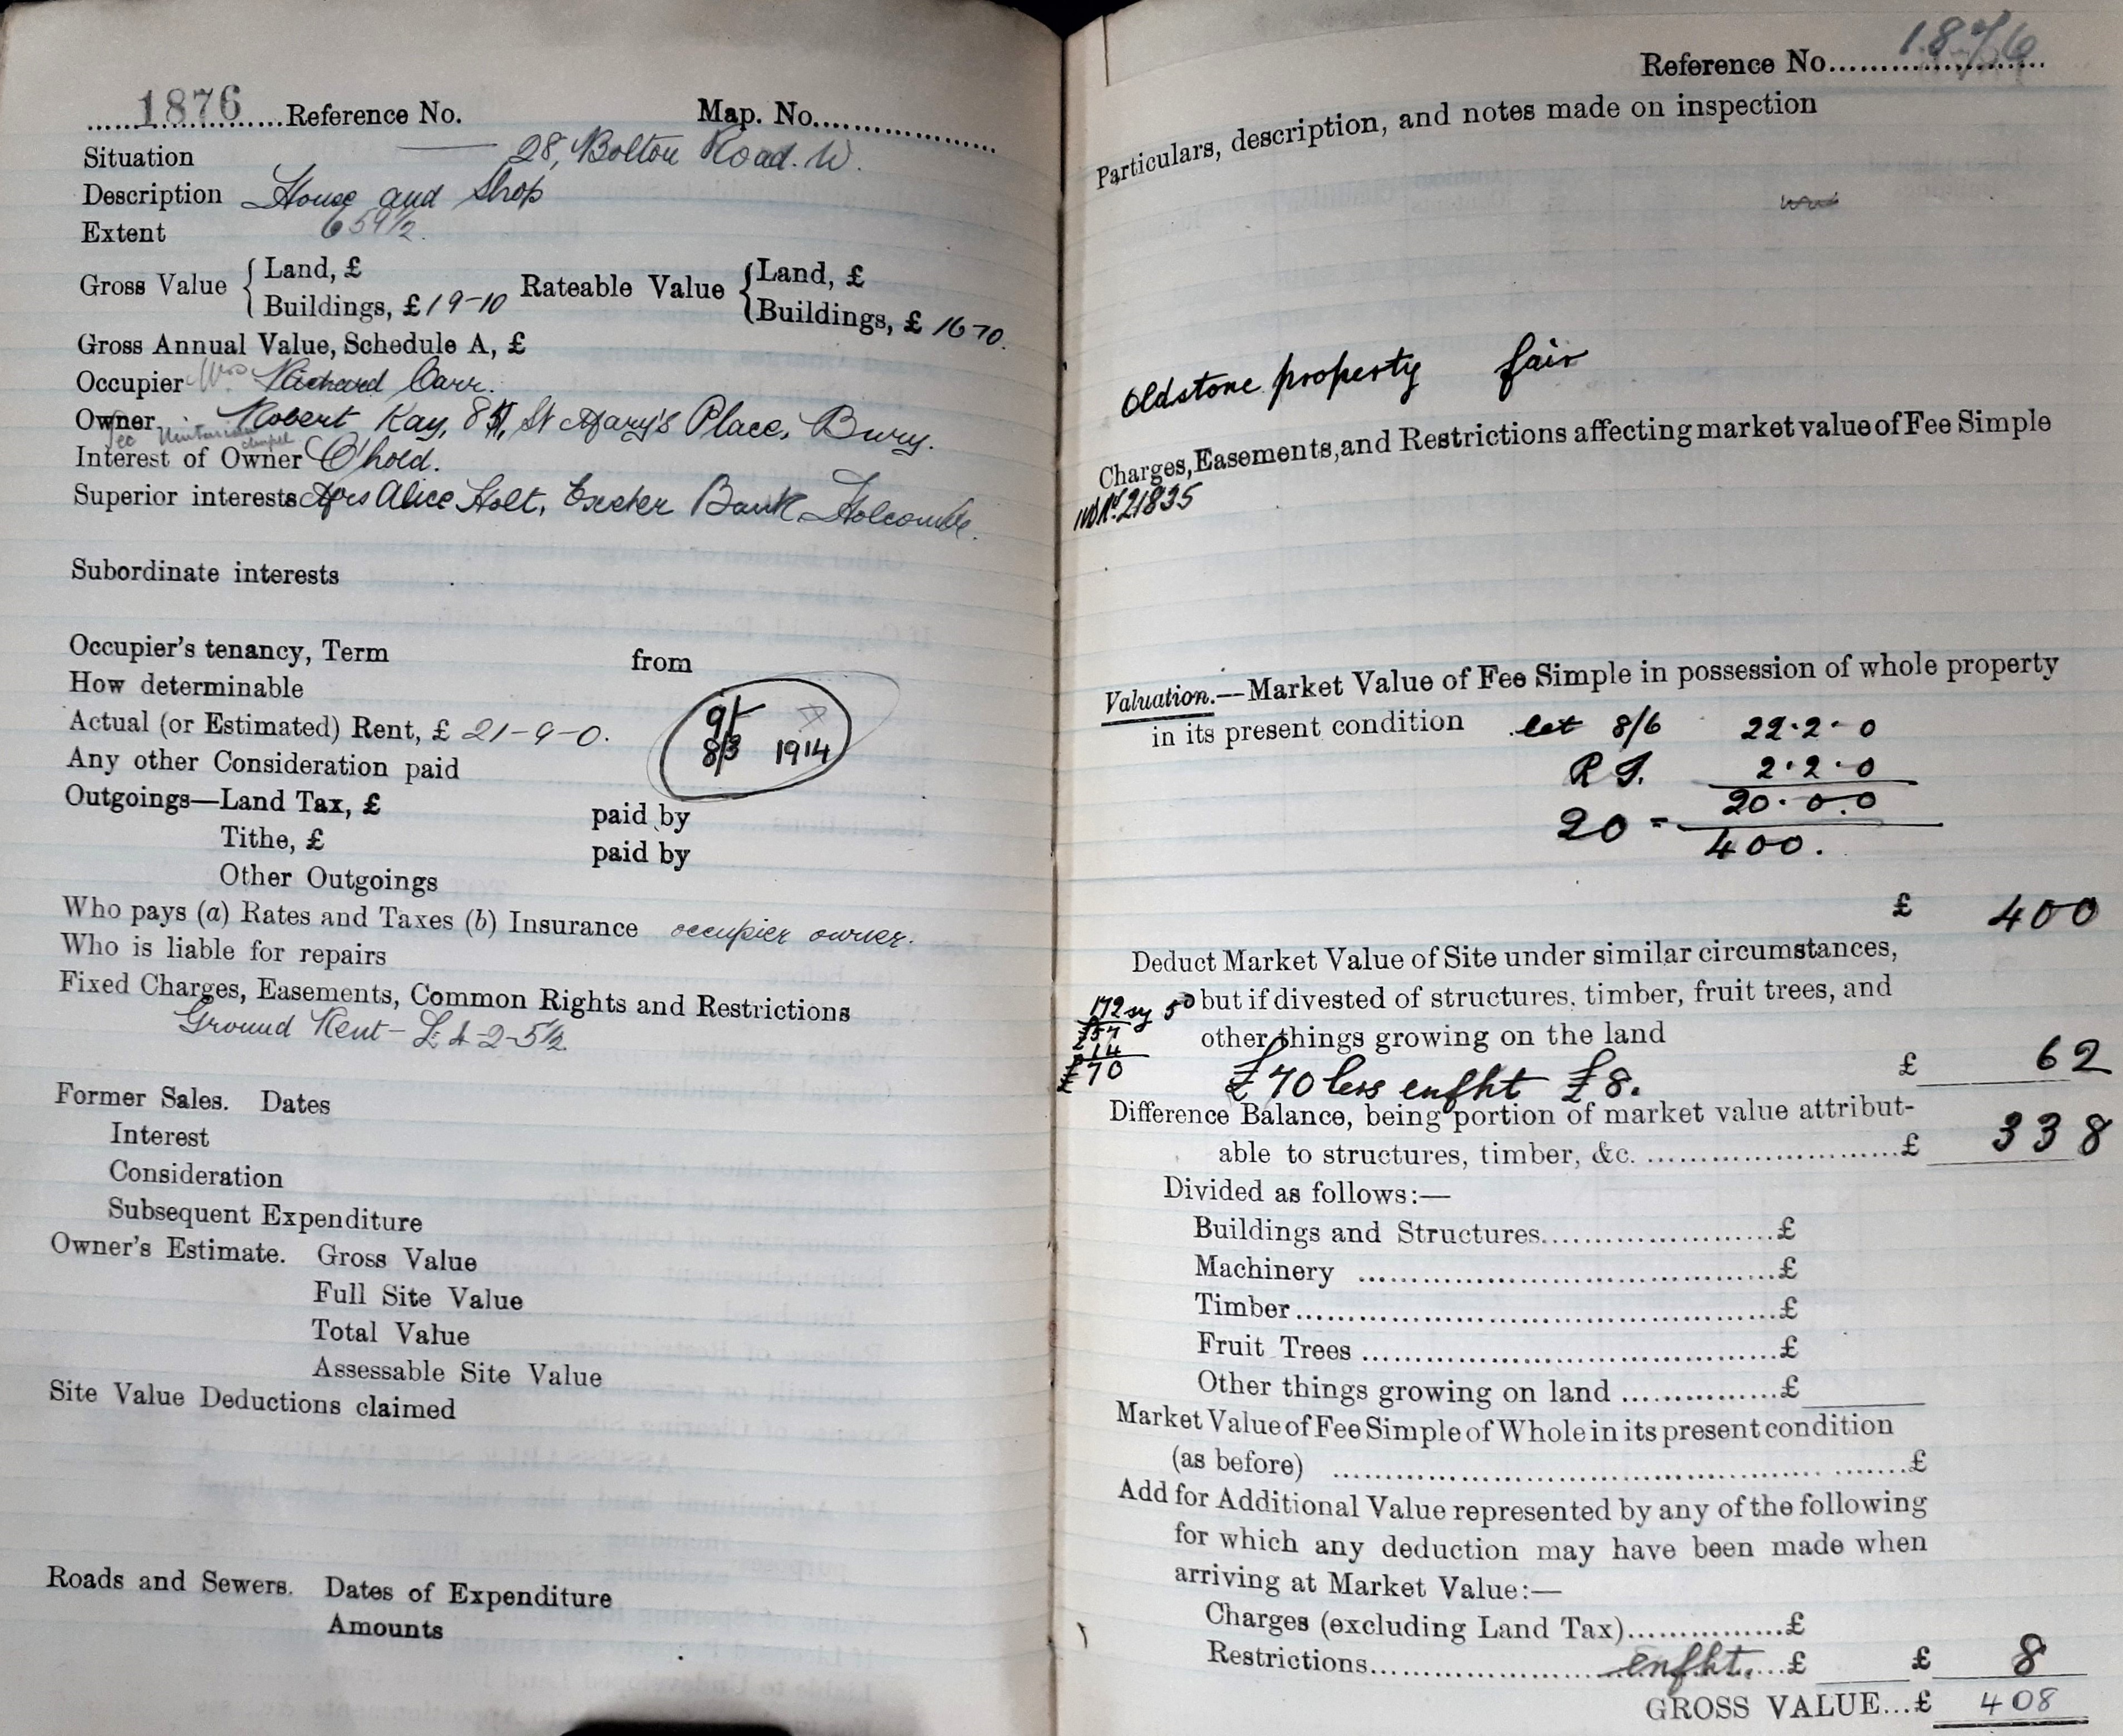 1876 Reference No. Map. No.
Situation 28, Bolton Road. W.
Description House and Shop
Extent 659½
Gross Value { Land, £ Rateable Value { Land, £
Buildings, £ 19-10 Buildings, £ 16-10.
Gross Annual Value, Schedule A, £
Occupier Mrs Richard Carr.
Owner Robert Kay, 8, St Mary's Place, Bury.
See Unitarian chapel
Interest of Owner C'hold.
Superior interests Mrs Alice Holt, Exeter Bank Holcombe.
Subordinate interests
Occupier's tenancy, Term from
How determinable
Actual (or Estimated) Rent, £ 21-9-0.
9/-
8/3 1914
Any other Consideration paid
Outgoings—Land Tax, £ paid by
Tithe, £ paid by
Other Outgoings
Who pays (a) Rates and Taxes (b) Insurance occupier owner.
Who is liable for repairs
Fixed Charges, Easements, Common Rights and Restrictions
Ground Rent - £4-2-5½
Former Sales. Dates
Interest
Consideration
Subsequent Expenditure
Owner's Estimate. Gross Value
Full Site Value
Total Value
Assessable Site Value
Site Value Deductions claimed
Roads and Sewers. Dates of Expenditure
Amounts
Reference No. 1876
Particulars, description, and notes made on inspection
Oldstone property fair
Charges, Easements, and Restrictions affecting market value of Fee Simple
21835
Valuation.—Market Value of Fee Simple in possession of whole property
in its present condition let 8/6 22.2.0
R 2.2.0
20.0.0
20 = 400.
£ 400
Deduct Market Value of Site under similar circumstances,
but if divested of structures, timber, fruit trees, and
other things growing on the land
172 sy 50
14
£70
£70 less enfht £8. £ 62
Difference Balance, being portion of market value attribut-
able to structures, timber, &c. £ 338
Divided as follows:—
Buildings and Structures £
Machinery £
Timber £
Fruit Trees £
Other things growing on land £
Market Value of Fee Simple of Whole in its present condition
(as before) £
Add for Additional Value represented by any of the following
for which any deduction may have been made when
arriving at Market Value:—
Charges (excluding Land Tax) £
Restrictions enfht. £ £ 8
GROSS VALUE...£ 408